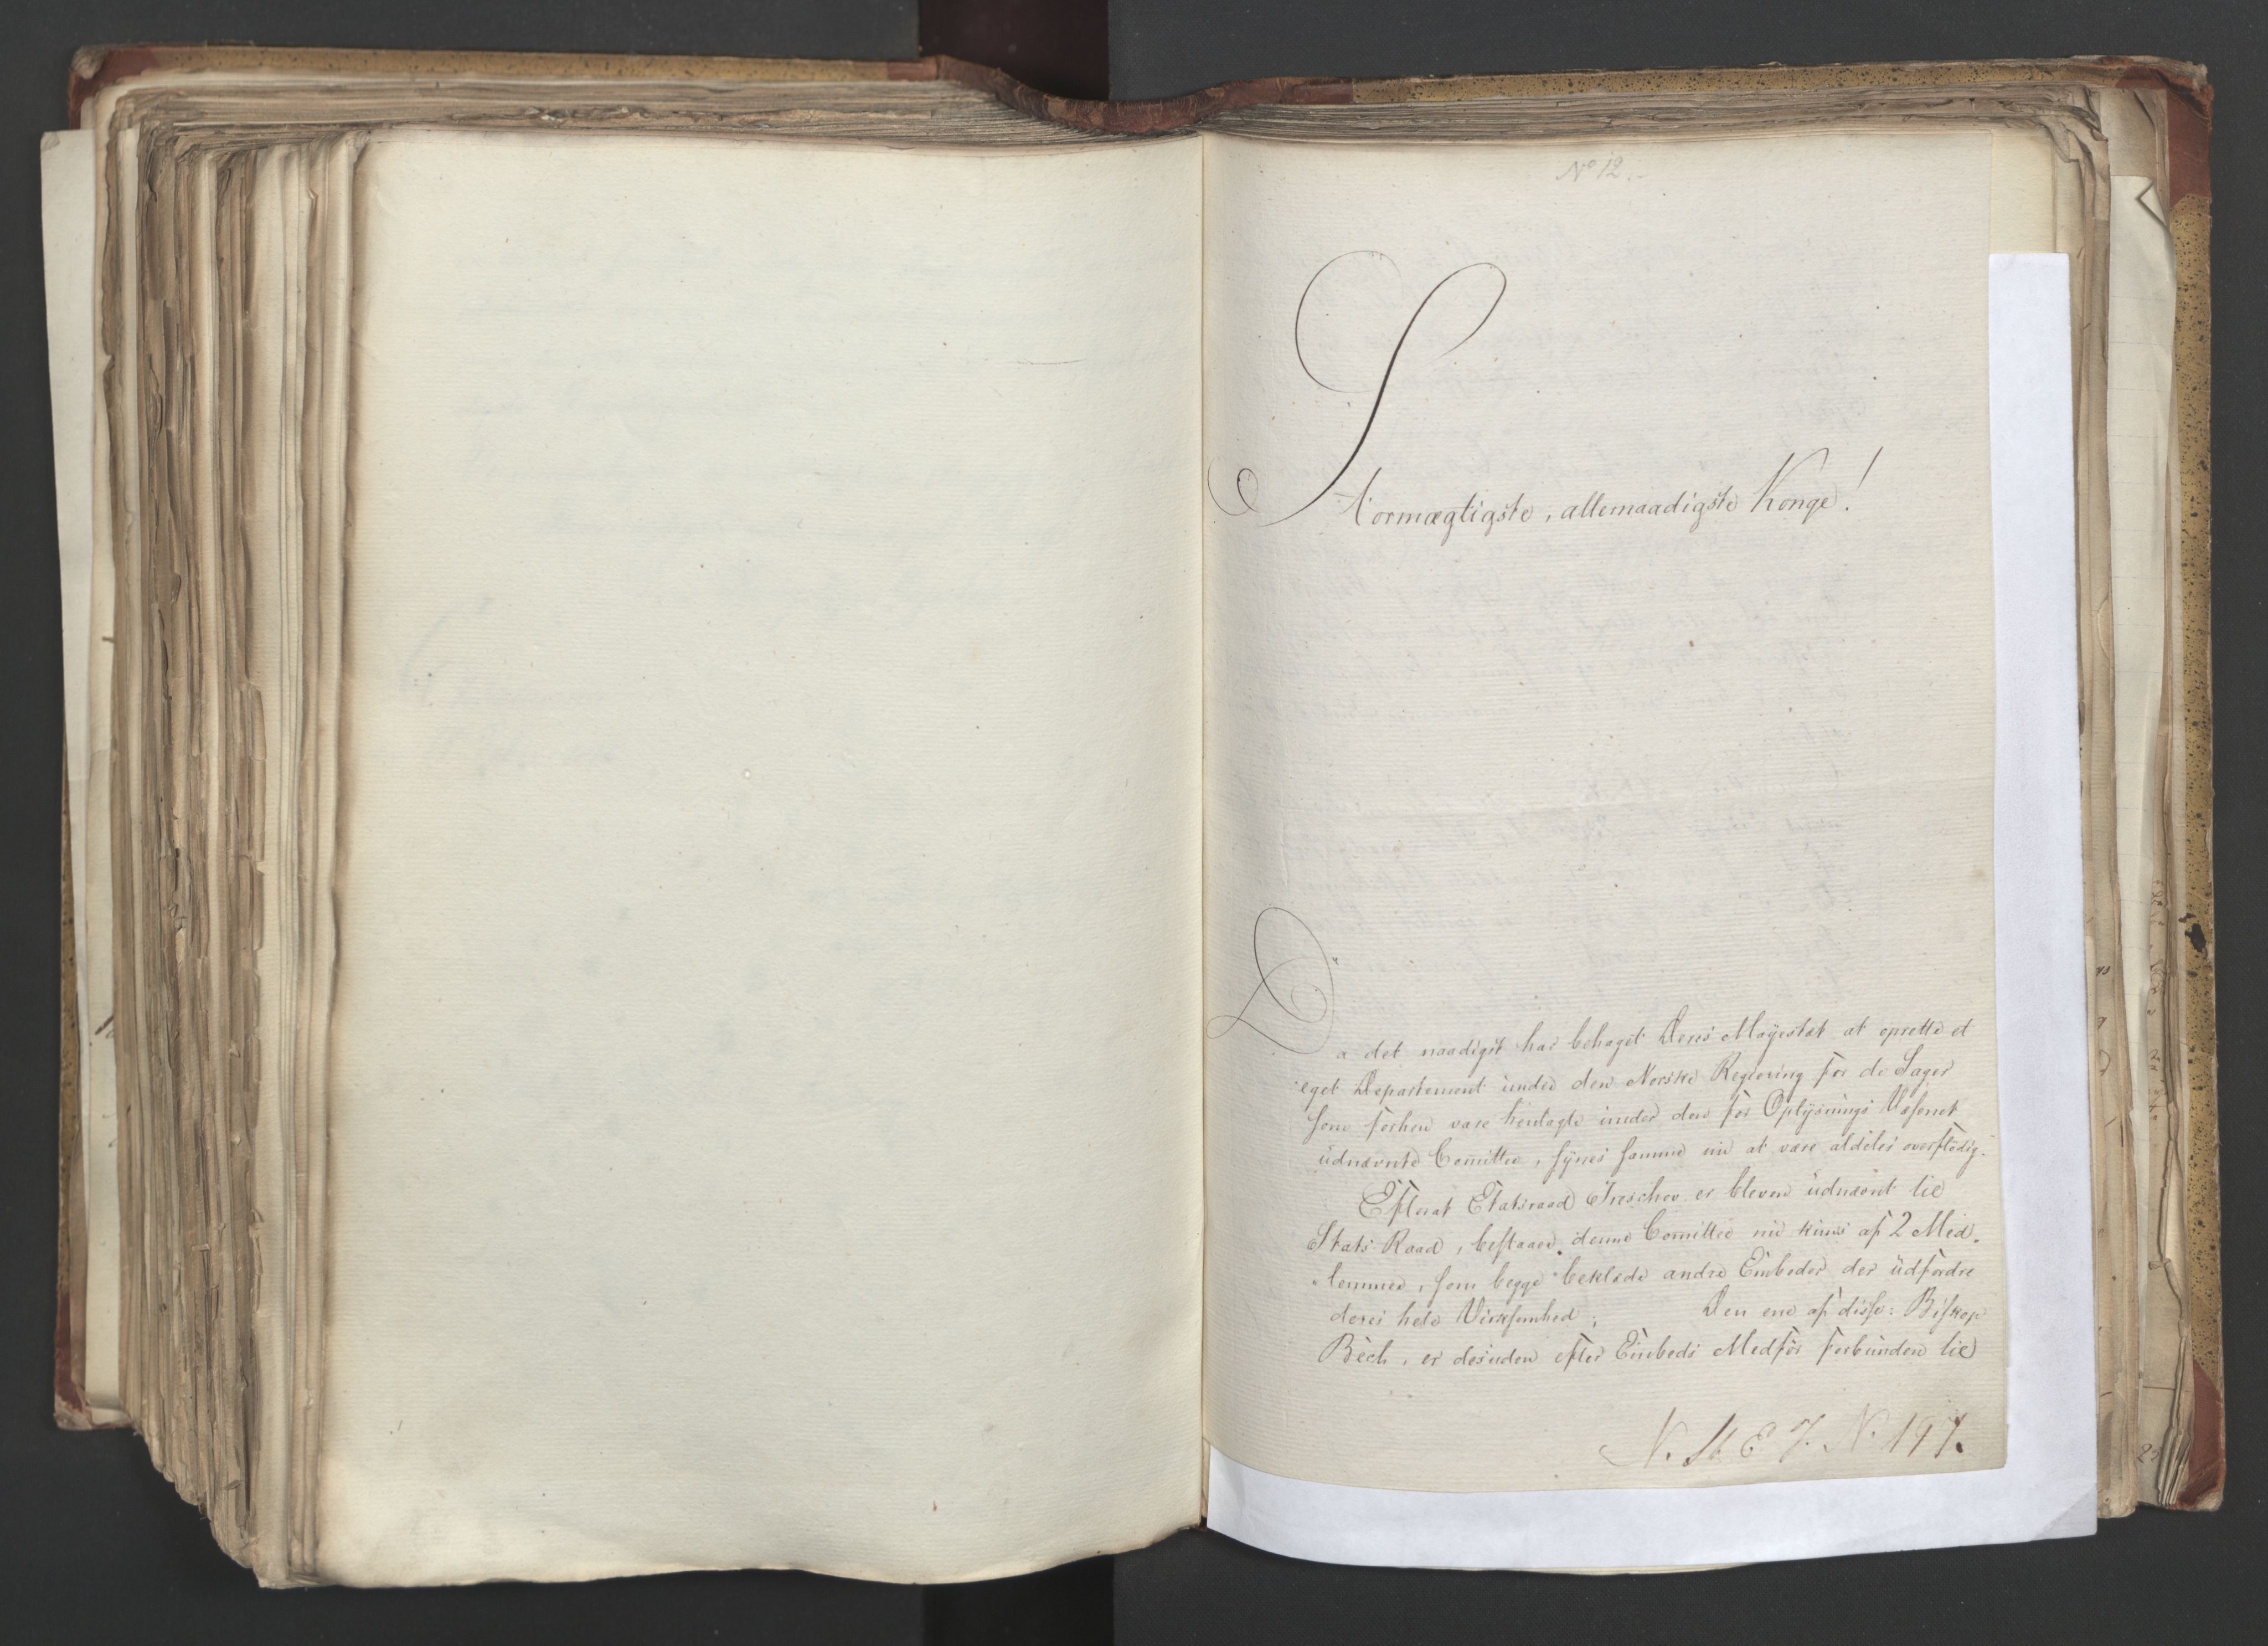 No 12.
Stormægtigste, allernaadigste Konge!
Da det naadigst har behaget Deres Mayestæt at oprette et
eget Departement under den Norske Regiering for de Sager
som forhen vare henlagte under den for Oplysnings Væsenet
udnævnte Comittee, synes samme nu at være aldeles overflødig.
Efterat Etatsraad Treschov er bleven udnævnt til
Stats-Raad, bestaaer denne Comittee nu kuns af 2 Med-
lemmer, som begge beklæde andre Embeder der udfordre
deres hele Virksomhed; Den ene af disse: Biskop
Bech, er desuden efter Embeds Medför forbunden til
N. St E 7. N. 197.